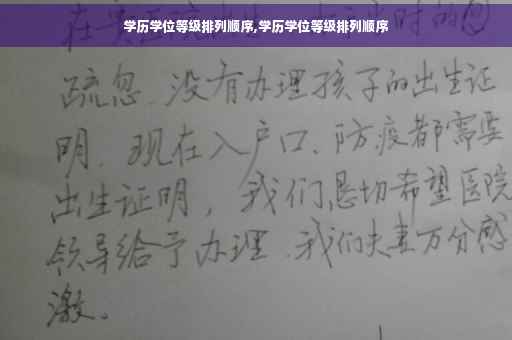 学历学位等级排列顺序,学历学位等级排列顺序
疏忽.没有办理孩子的出生证
明.现在入户口、防疫都需要
出生证明，我们恳切希望医院
领导给予办理.我们夫妻万分感
激。